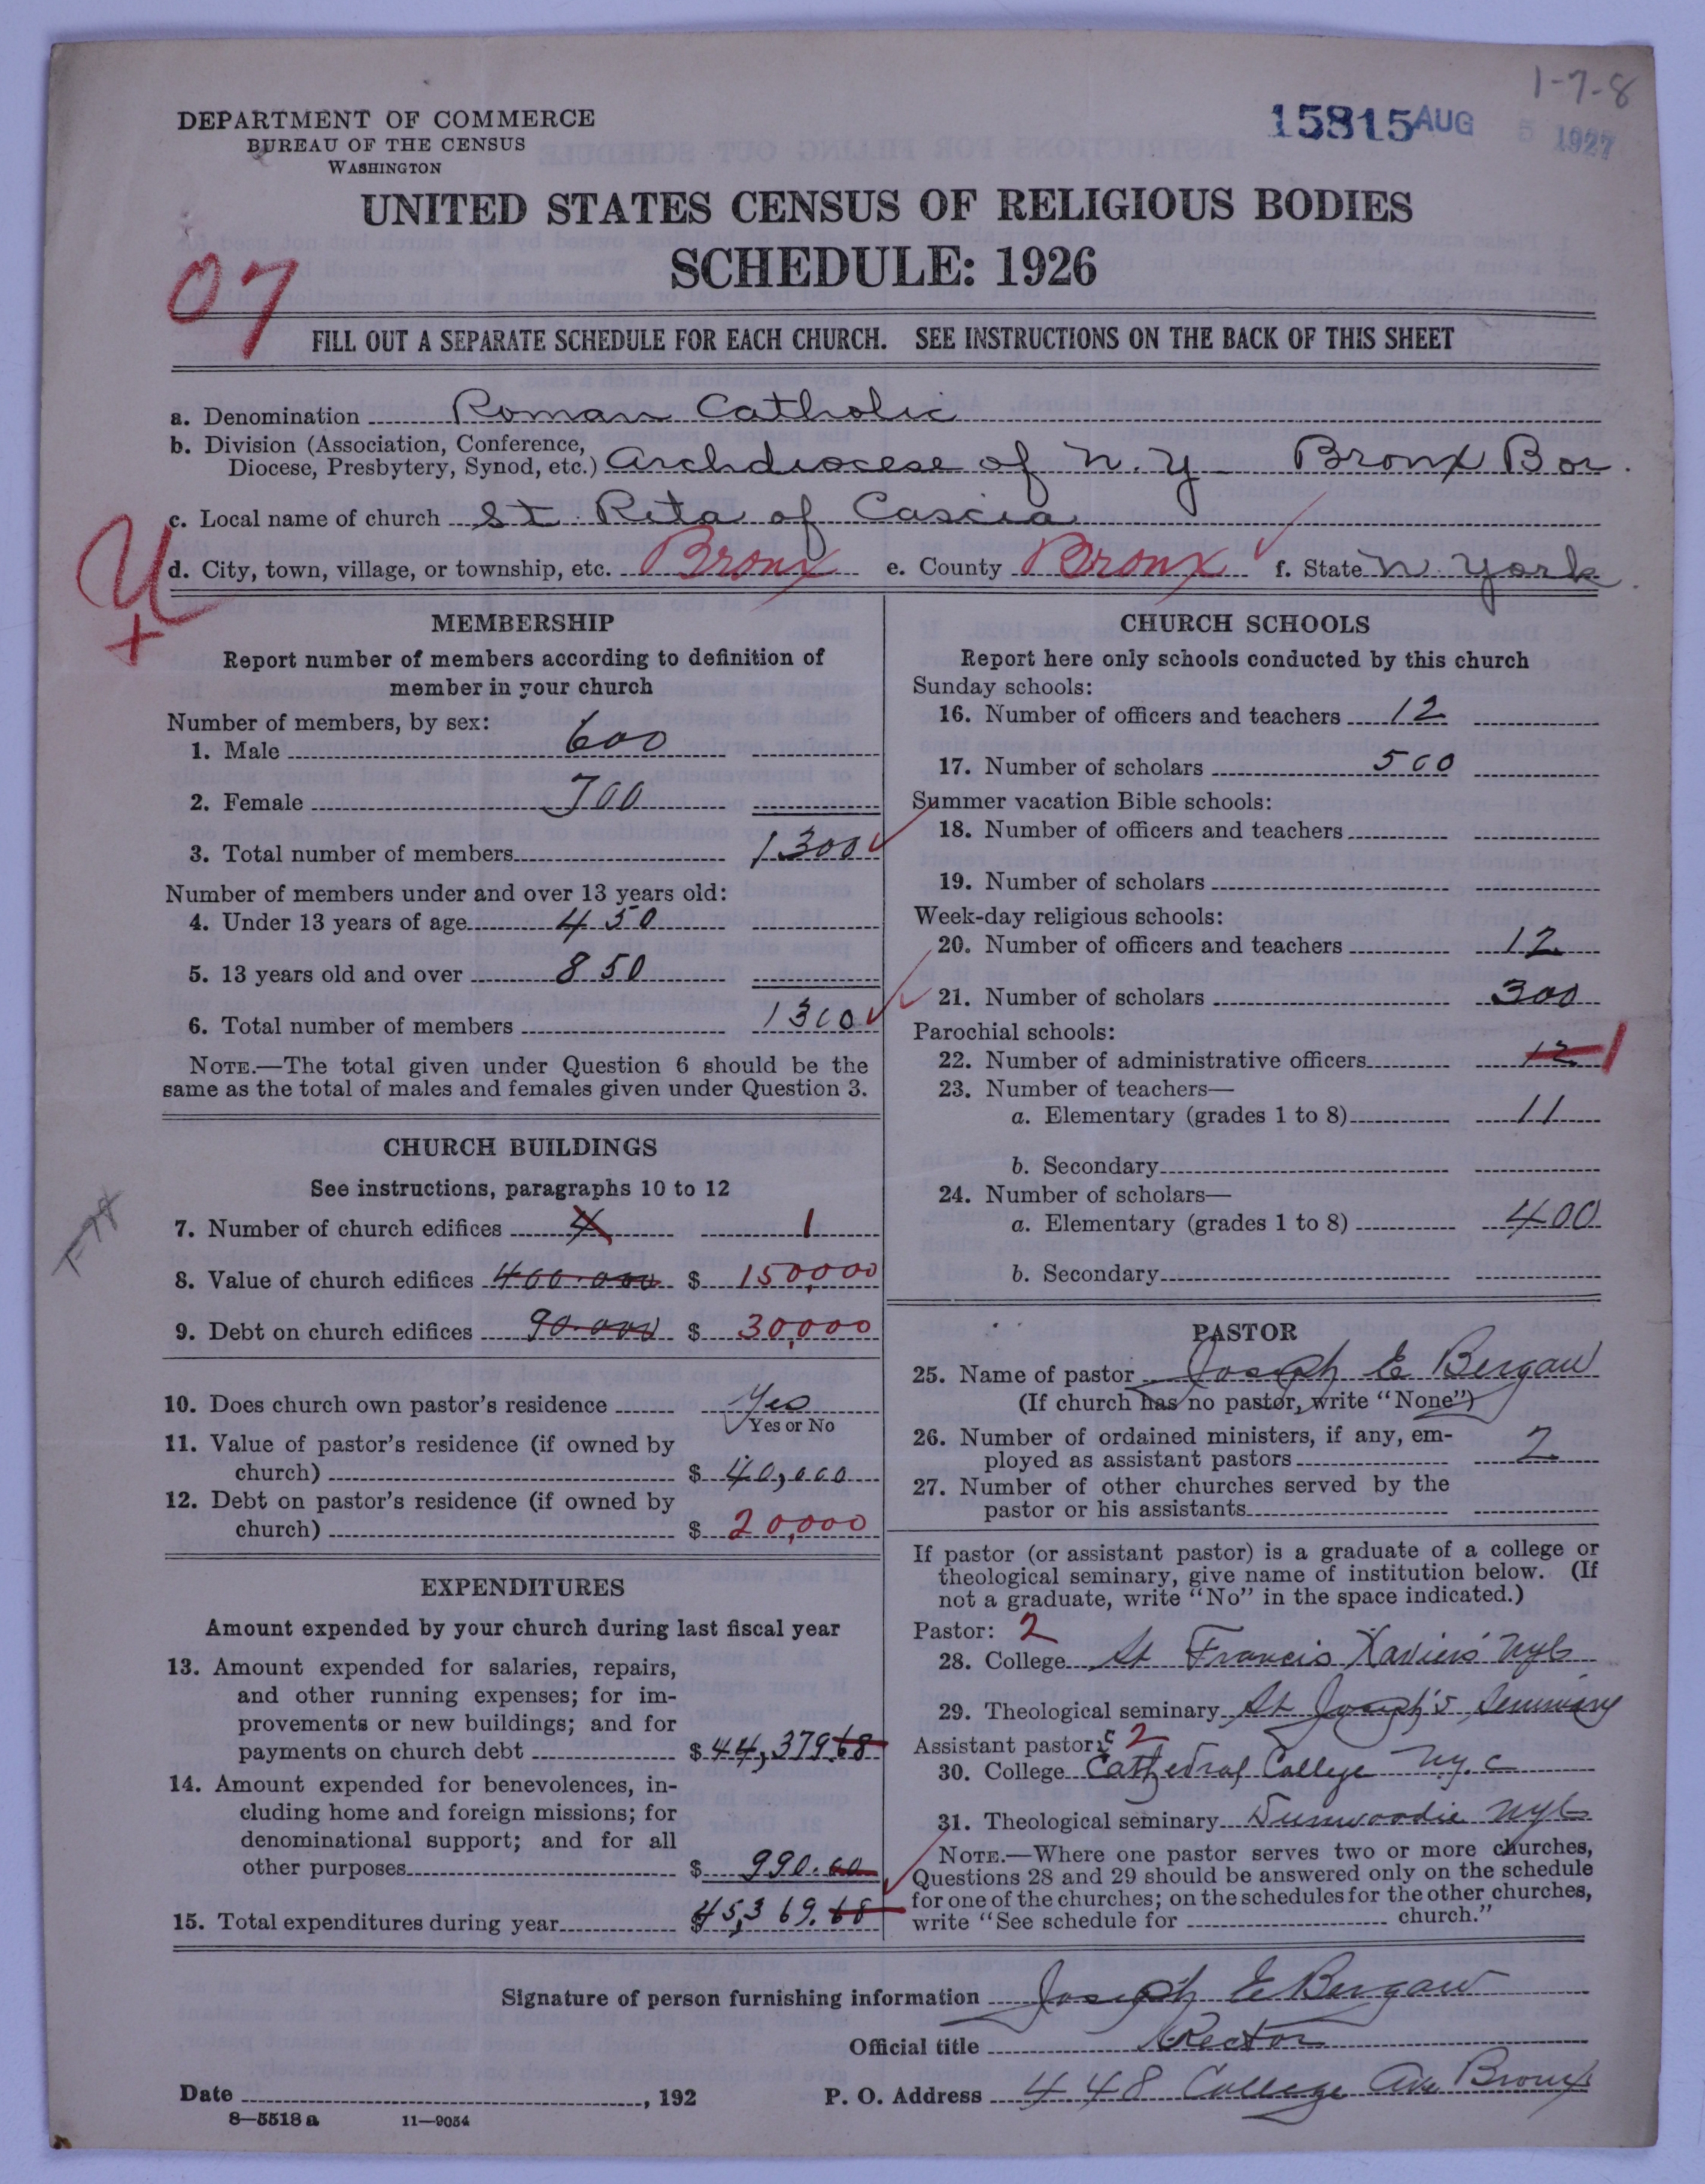 1-7-8
15815 AUG 5 1927
DEPARTMENT OF COMMERCE
BUREAU OF THE CENSUS
WASHINGTON
UNITED STATES CENSUS OF RELIGIOUS BODIES
SCHEDULE: 1926
07
FILL OUT A SEPARATE SCHEDULE FOR EACH CHURCH. SEE INSTRUCTIONS ON THE BACK OF THIS SHEET
a. Denomination Roman Catholic
b. Division (Association, Conference,
Diocese, Presbytery, Synod, etc.) Archdiocese of N. Y. Bronx Bor.
c. Local name of church St Rita of Cascia
U
+
d. City, town, village, or township, etc. Bronx e. County Bronx f. State N. York
MEMBERSHIP
Report number of members according to definition of
member in your church
Number of members, by sex:
1. Male 600
2. Female 700
3. Total number of members 1300
Number of members under and over 13 years old:
4. Under 13 years of age 450
5. 13 years old and over 850
6. Total number of members 1300
NOTE.—The total given under Question 6 should be the
same as the total of males and females given under Question 3.
CHURCH BUILDINGS
See instructions, paragraphs 10 to 12
7. Number of church edifices 4 1
8. Value of church edifices 400.000 $ 150,000
9. Debt on church edifices 90.000 $ 30,000
10. Does church own pastor's residence Yes
Yes or No
11. Value of pastor's residence (if owned by
church) $ 40,000
12. Debt on pastor's residence (if owned by
church) $ 20,000
EXPENDITURES
Amount expended by your church during last fiscal year
13. Amount expended for salaries, repairs,
and other running expenses; for im-
provements or new buildings; and for
payments on church debt $ 44,379 68
14. Amount expended for benevolences, in-
cluding home and foreign missions; for
denominational support; and for all
other purposes $ 990.00
15. Total expenditures during year $ 45,369.68
CHURCH SCHOOLS
Report here only schools conducted by this church
Sunday schools:
16. Number of officers and teachers 12
17. Number of scholars 500
Summer vacation Bible schools:
18. Number of officers and teachers
19. Number of scholars
Week-day religious schools:
20. Number of officers and teachers 12
21. Number of scholars 300
Parochial schools:
22. Number of administrative officers 12 1
23. Number of teachers—
a. Elementary (grades 1 to 8) 11
b. Secondary
24. Number of scholars—
a. Elementary (grades 1 to 8) 400
b. Secondary
PASTOR
25. Name of pastor Joseph E Bergan
(If church has no pastor, write "None")
26. Number of ordained ministers, if any, em-
ployed as assistant pastors 2
27. Number of other churches served by the
pastor or his assistants
If pastor (or assistant pastor) is a graduate of a college or
theological seminary, give name of institution below. (If
not a graduate, write "No" in the space indicated.)
Pastor: 2
28. College St Francis Xavier's NYC
29. Theological seminary St Joseph's Seminary
Assistant pastor: s 2
30. College Cathedral College N.Y.C
31. Theological seminary Dunwoodie NYC
NOTE.—Where one pastor serves two or more churches,
Questions 28 and 29 should be answered only on the schedule
for one of the churches; on the schedules for the other churches,
write "See schedule for church."
Signature of person furnishing information Joseph E Bergan
Official title Rector
Date , 192 P. O. Address 448 College Ave Bronx
8—5518 a 11—9054